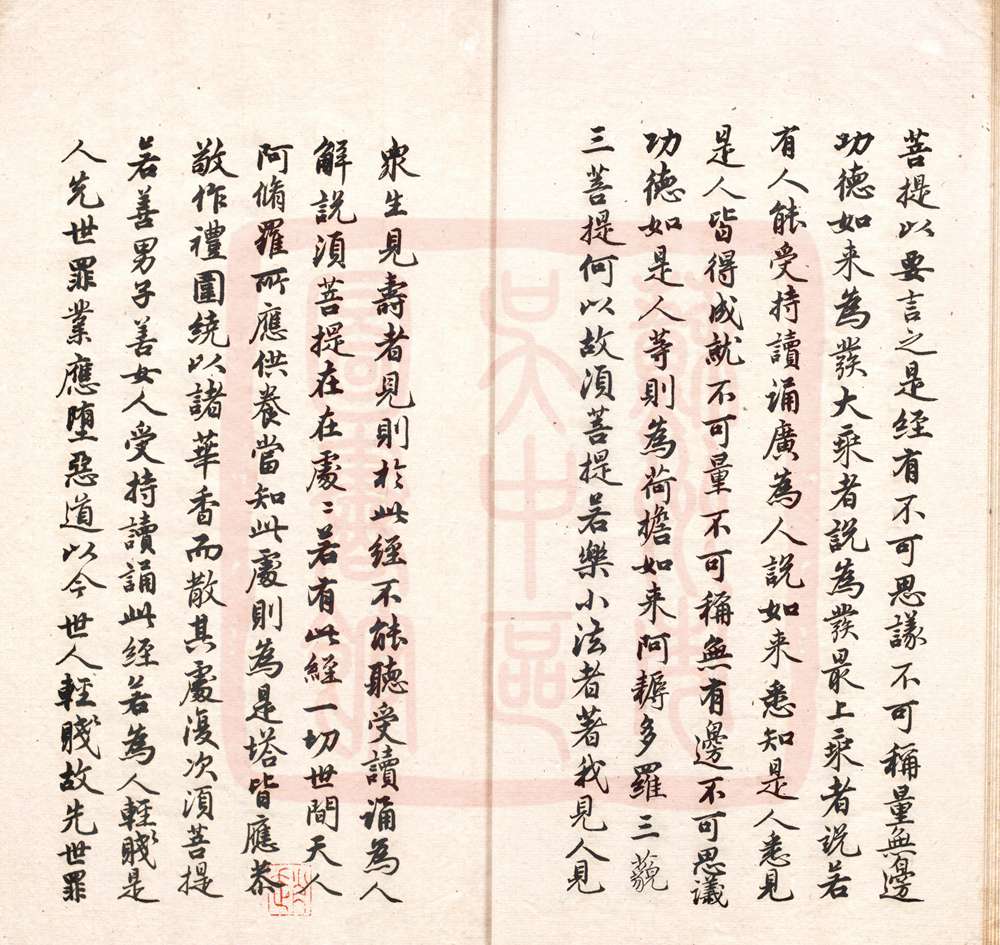 菩提以要言之是经有不可思議不可稱量無邊
功德如来為發大乘者說為發最上乘者說若
有人能受持讀誦廣為人說如来悉知是人悉見
是人皆得成就不可量不可稱無有邊不可思議
功德如是人等則為荷擔如来阿耨多羅三藐
三菩提何以故須菩提若樂小法者著我見人見
衆生見壽者見則於此經不能聽受讀誦為人
解說須菩提在在處〻若有此經一切世間天人
阿脩羅所應供養當知此處則為是塔皆應恭
敬作禮圍繞以諸華香而散其處復次須菩提
若善男子善女人受持讀誦此經若為人輕賤是
人先世罪業應墮惡道以今世人輕賤故先世罪